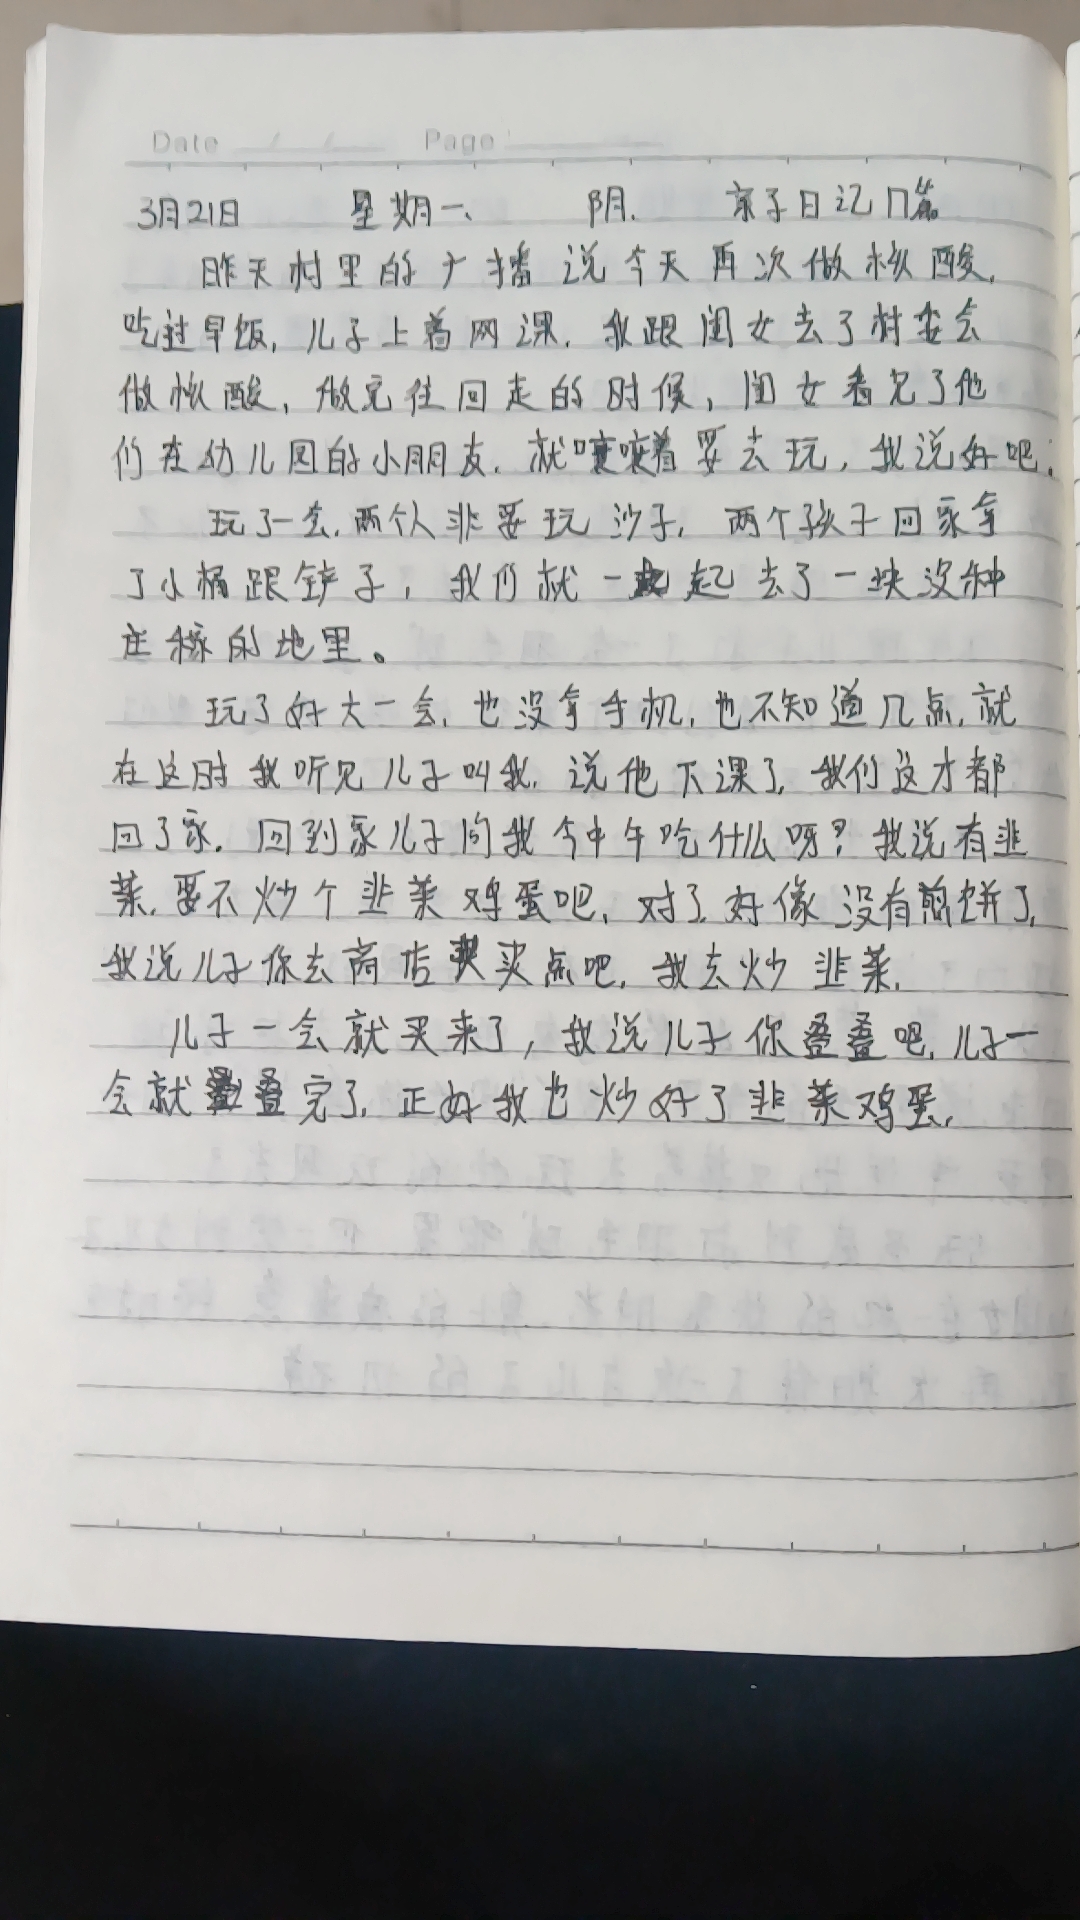 Date / / Page
3月21日 星期一、 阴. 亲子日记 篇
昨天村里的广播说今天再次做核酸,
吃过早饭, 儿子上着网课, 我跟闺女去了村委会
做核酸, 做完往回走的时候, 闺女看见了他
们在幼儿园的小朋友, 就嚷嚷着要去玩, 我说好吧.
玩了一会, 两个人非要玩沙子, 两个孩子回家拿
了小桶跟铲子, 我们就一起去了一块没种
庄稼的地里。
玩了好大一会, 也没拿手机, 也不知道几点, 就
在这时我听见儿子叫我, 说他下课了, 我们这才都
回了家. 回到家儿子问我今中午吃什么呀? 我说有韭
菜, 要不炒个韭菜鸡蛋吧, 对了, 好像没有煎饼了,
我说儿子你去商店买点吧, 我去炒韭菜.
儿子一会就买来了, 我说儿子你叠叠吧, 儿子一
会就叠完了, 正好我也炒好了韭菜鸡蛋.